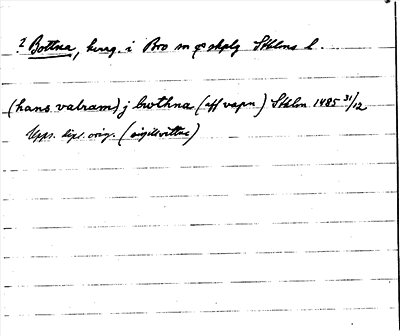 ? Bottna, herrg. i Bro sn o skplg Sthlms l.
(hans valram) j brothna (aff vapn) Sthlm 1485 31/12
Upps. dipl. orig. (sigillvittne)